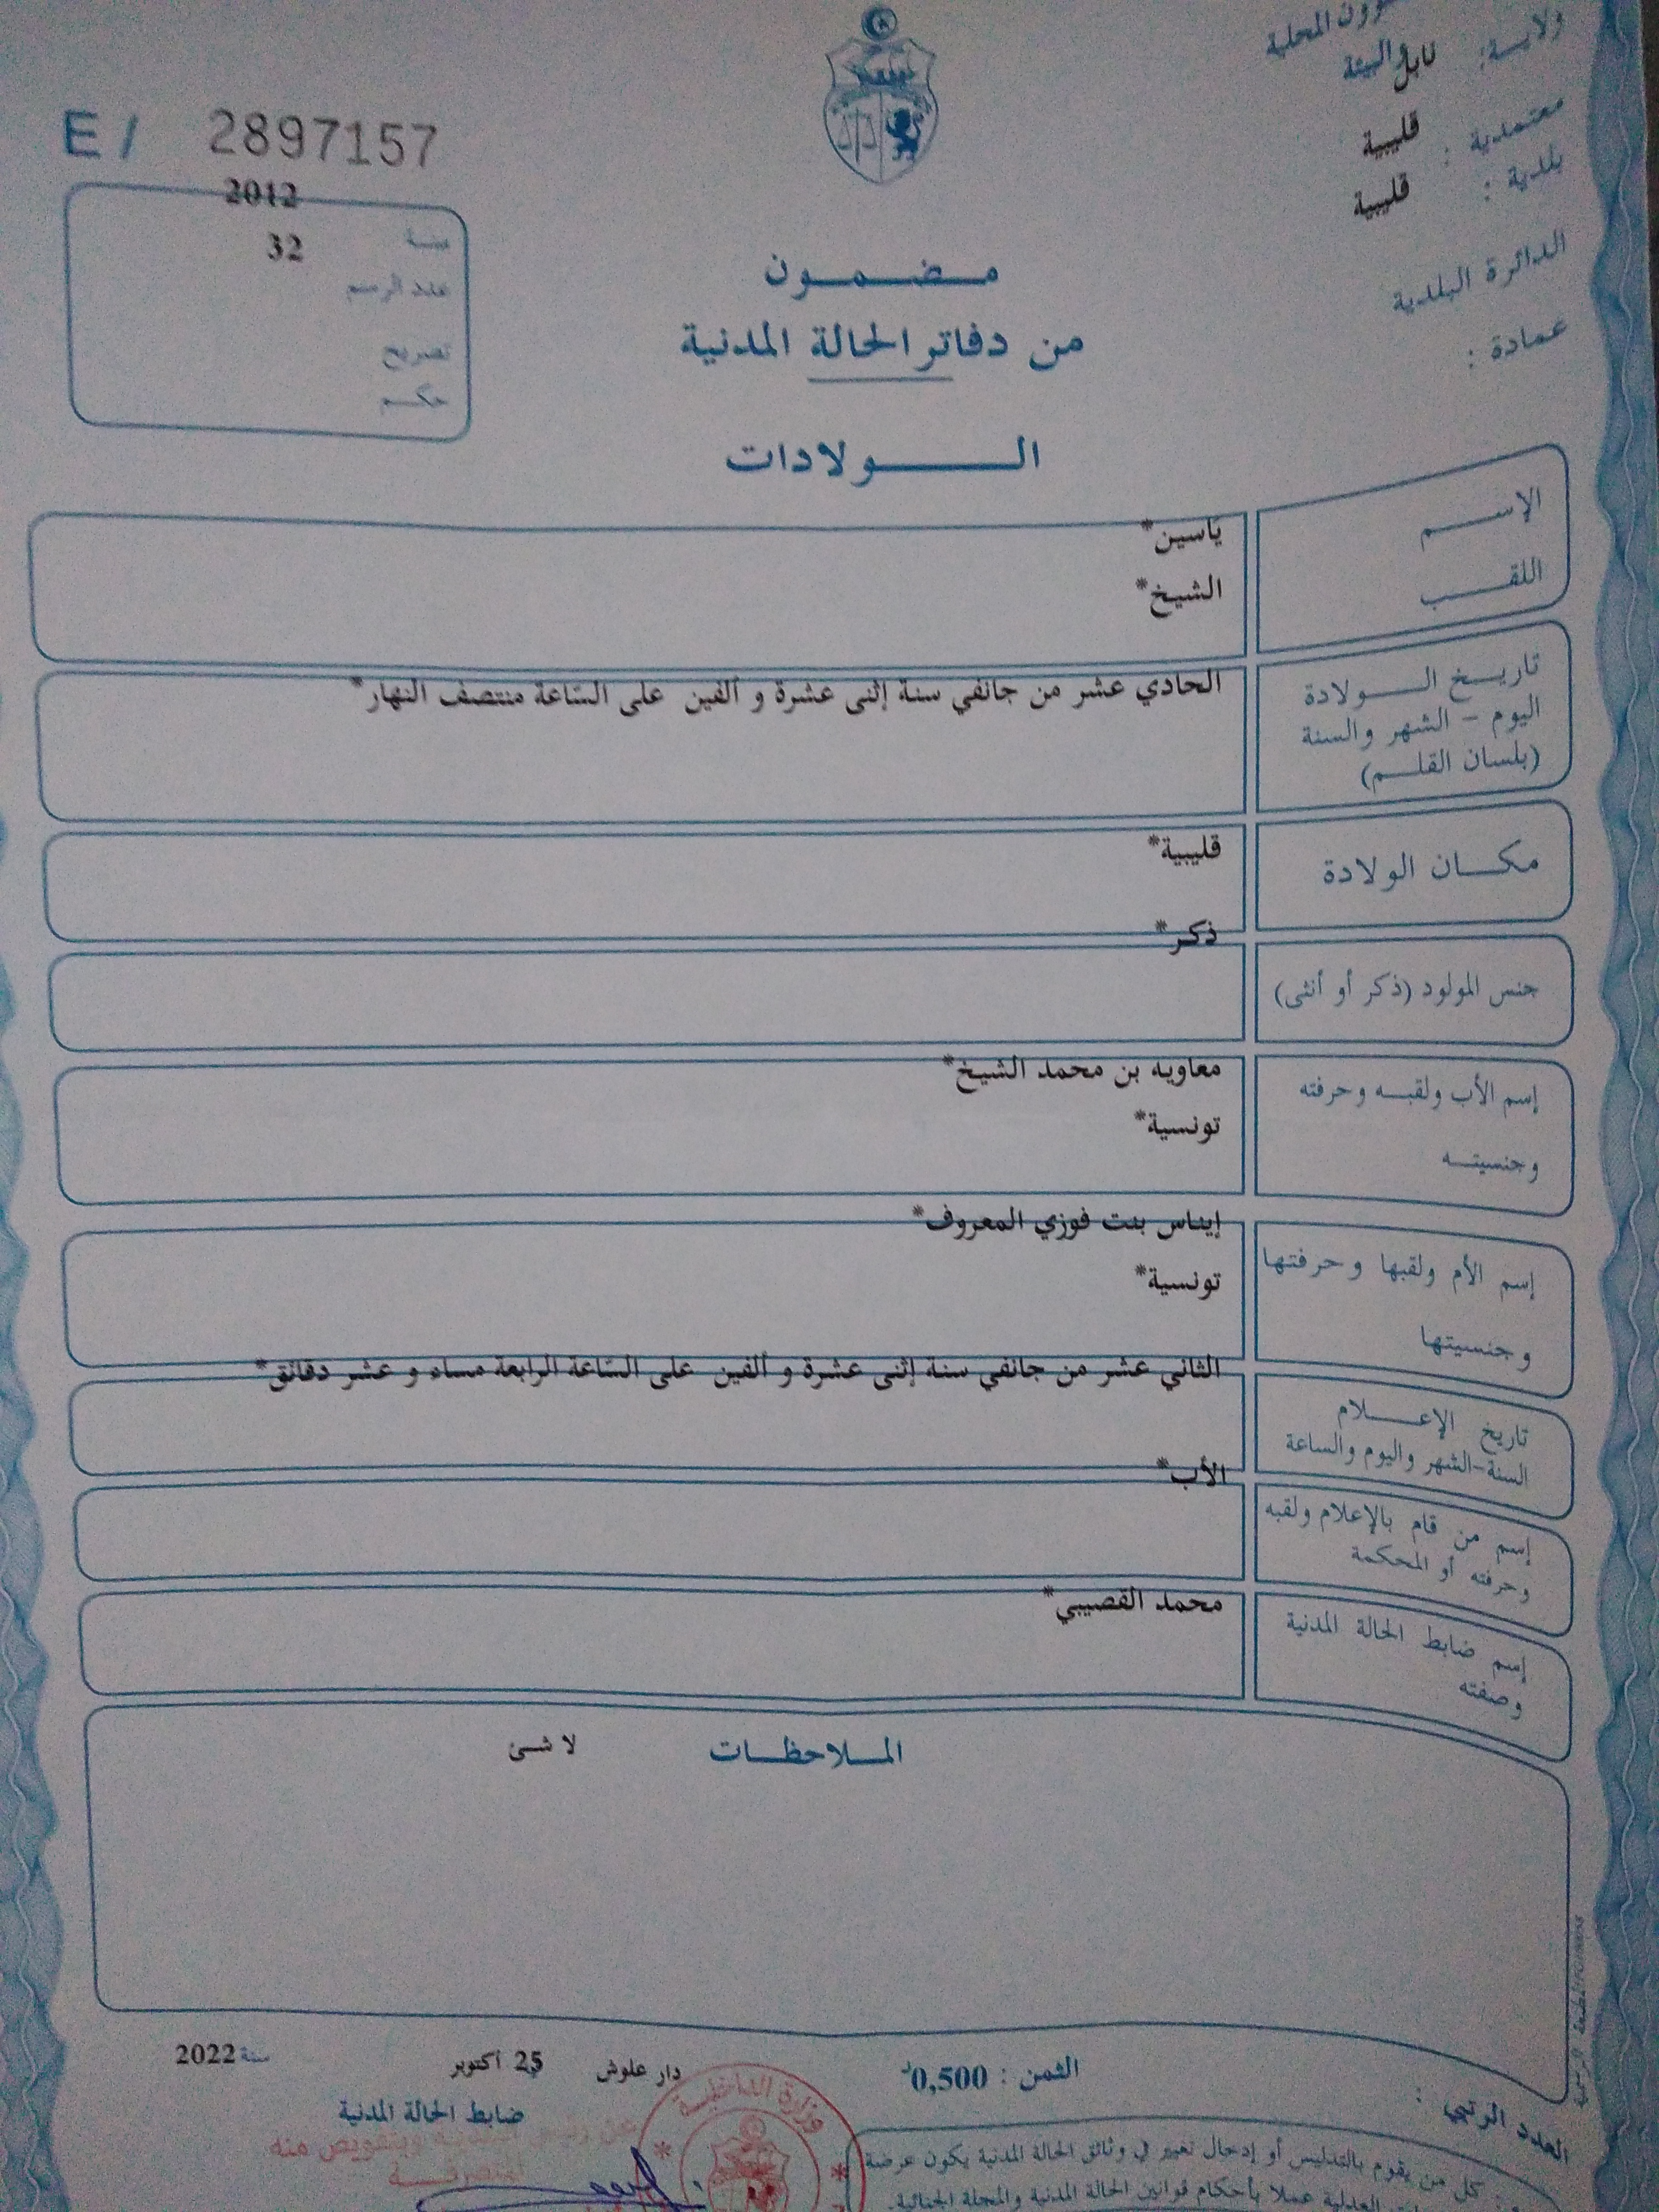 ـؤون المحلية
والبيئة
ولايـــة: نابل
معتمدية : قليبية
بلدية : قليبية
الدائرة البلدية
عمادة :
E / 2897157
سنــة 2012
عدد الرسم 32
تصريح
حكــم
مـضـمـون
من دفاتر الحالة المدنية
الـولادات
الإســـم ياسين*
اللقــب الشيخ*
تاريـخ الـــولادة الحادي عشر من جانفي سنة إثنى عشرة و ألفين على السّاعة منتصف النهار*
اليوم - الشهر والسنة
(بلسان القلــم)
مكــان الولادة قليبية*
جنس المولود (ذكر أو أنثى) ذكر*
إسم الأب ولقبــه وحرفته معاويه بن محمد الشيخ*
وجنسيتــه تونسية*
إسم الأم ولقبها وحرفتها إيناس بنت فوزي المعروف*
وجنسيتها تونسية*
تاريخ الإعـــلام الثاني عشر من جانفي سنة إثنى عشرة و ألفين على السّاعة الرابعة مساء و عشر دقائق*
السنة-الشهر واليوم والساعة
إسم من قام بالإعلام ولقبه الأب*
وحرفته أو المحكمة
إسم ضابط الحالة المدنية محمد القصيبي*
وصفته
المـلاحظـات لا شئ
دار علوش 25 أكتوبر سنة 2022
الثمن : 0,500د
ضابط الحالة المدنية
العدد الرتبي :
وزارة الداخلية
وبتفويض منه
كل من يقوم بالتدليس أو إدخال تغيير في وثائق الحالة المدنية يكون عرضة
العدلية عملا بأحكام قوانين الحالة المدنية والمجلة الجنائية.